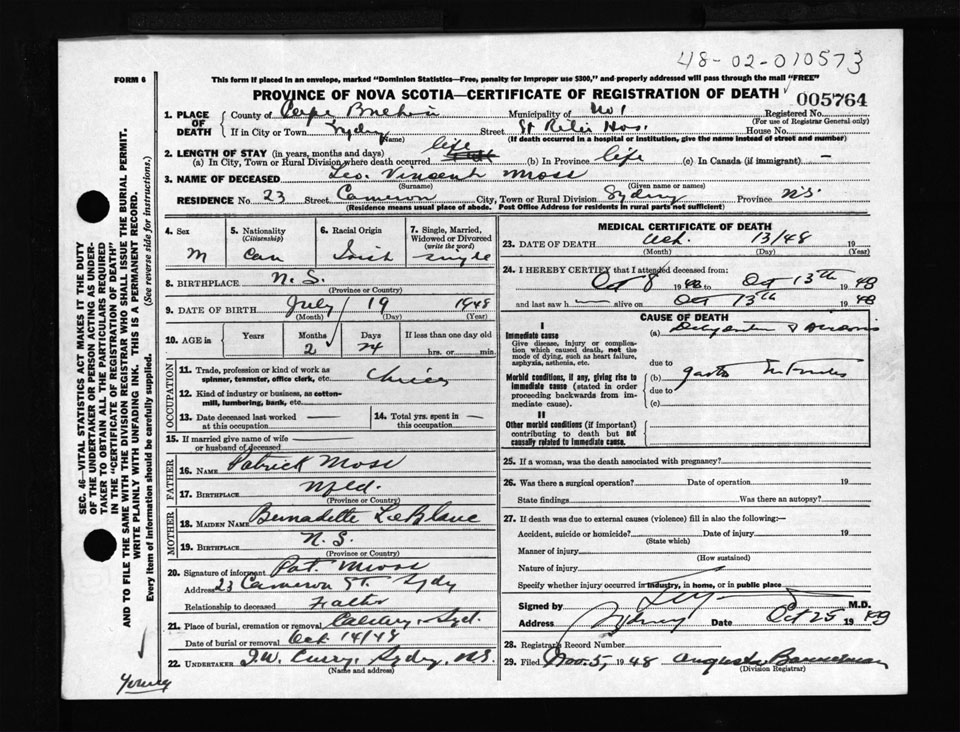 48-02-010573
FORM 6
This form if placed in an envelope, marked "Dominion Statistics—Free, penalty for improper use $300," and properly addressed will pass through the mail "FREE"
PROVINCE OF NOVA SCOTIA—CERTIFICATE OF REGISTRATION OF DEATH
005764
1. PLACE OF DEATH
County of Cape Breton Municipality of No 1 Registered No.
(For use of Registrar General only)
If in City or Town Sydney Street St Hos. House No.
(Name) (If death occurred in a hospital or institution, give the name instead of street and number)
2. LENGTH OF STAY (in years, months and days)
(a) In City, Town or Rural Division where death occurred life (b) In Province life (c) In Canada (if immigrant) —
3. NAME OF DECEASED Leo. Vincent Moss
(Surname) (Given name or names)
RESIDENCE No. 23 Street Cameron City, Town or Rural Division Sydney Province N.S.
(Residence means usual place of abode. Post Office Address for residents in rural parts not sufficient)
4. Sex M
5. Nationality (Citizenship) Can
6. Racial Origin Irish
7. Single, Married, Widowed or Divorced (write the word) single
8. BIRTHPLACE N.S.
(Province or Country)
9. DATE OF BIRTH July 19 1948
(Month) (Day) (Year)
10. AGE in Years Months 2 Days 24 If less than one day old
hrs. or min.
OCCUPATION
11. Trade, profession or kind of work as spinner, teamster, office clerk, etc.
12. Kind of industry or business, as cotton-mill, lumbering, bank, etc.
13. Date deceased last worked at this occupation —
14. Total yrs. spent in this occupation —
15. If married give name of wife or husband of deceased —
FATHER
16. NAME Patrick Moss
17. BIRTHPLACE Nfld.
(Province or Country)
MOTHER
18. MAIDEN NAME Bernadette LeBlanc
19. BIRTHPLACE N.S.
(Province or Country)
20. Signature of informant Pat. Moss
Address 23 Cameron St. Sydy
Relationship to deceased Father
21. Place of burial, cremation or removal Calvary, Syd.
Date of burial or removal Oct. 14/48
22. UNDERTAKER J.W. Curry, Sydney, N.S.
(Name and address)
MEDICAL CERTIFICATE OF DEATH
23. DATE OF DEATH Oct. 13/48 19
(Month) (Day) (Year)
24. I HEREBY CERTIFY that I attended deceased from:
Oct 8 1948 to Oct 13th 1948
and last saw h alive on Oct 13th 1948
CAUSE OF DEATH
I
Immediate cause
Give disease, injury or complication which caused death, not the mode of dying, such as heart failure, asphyxia, asthenia, etc.
(a)
due to
Morbid conditions, if any, giving rise to immediate cause (stated in order proceeding backwards from immediate cause).
(b) gastro
due to
(c)
II
Other morbid conditions (if important) contributing to death but not causally related to immediate cause.
25. If a woman, was the death associated with pregnancy?
26. Was there a surgical operation? Date of operation 19
State findings Was there an autopsy?
27. If death was due to external causes (violence) fill in also the following:—
Accident, suicide or homicide? Date of injury 19
(State which)
Manner of injury
(How sustained)
Nature of injury
Specify whether injury occurred in industry, in home, or in public place
Signed by M.D.
Address Sydney Date Oct 25 1948
28. Registrar's Record Number
29. Filed Nov. 5, 1948 Bannerman
(Division Registrar)
SEC. 46—VITAL STATISTICS ACT MAKES IT THE DUTY
OF THE UNDERTAKER OR PERSON ACTING AS UNDERTAKER TO OBTAIN ALL THE PARTICULARS REQUIRED
IN THE "CERTIFICATE OF REGISTRATION OF DEATH"
AND TO FILE THE SAME WITH THE DIVISION REGISTRAR WHO SHALL ISSUE THE BURIAL PERMIT.
WRITE PLAINLY WITH UNFADING INK. THIS IS A PERMANENT RECORD.
Every item of information should be carefully supplied. (See reverse side for instructions.)